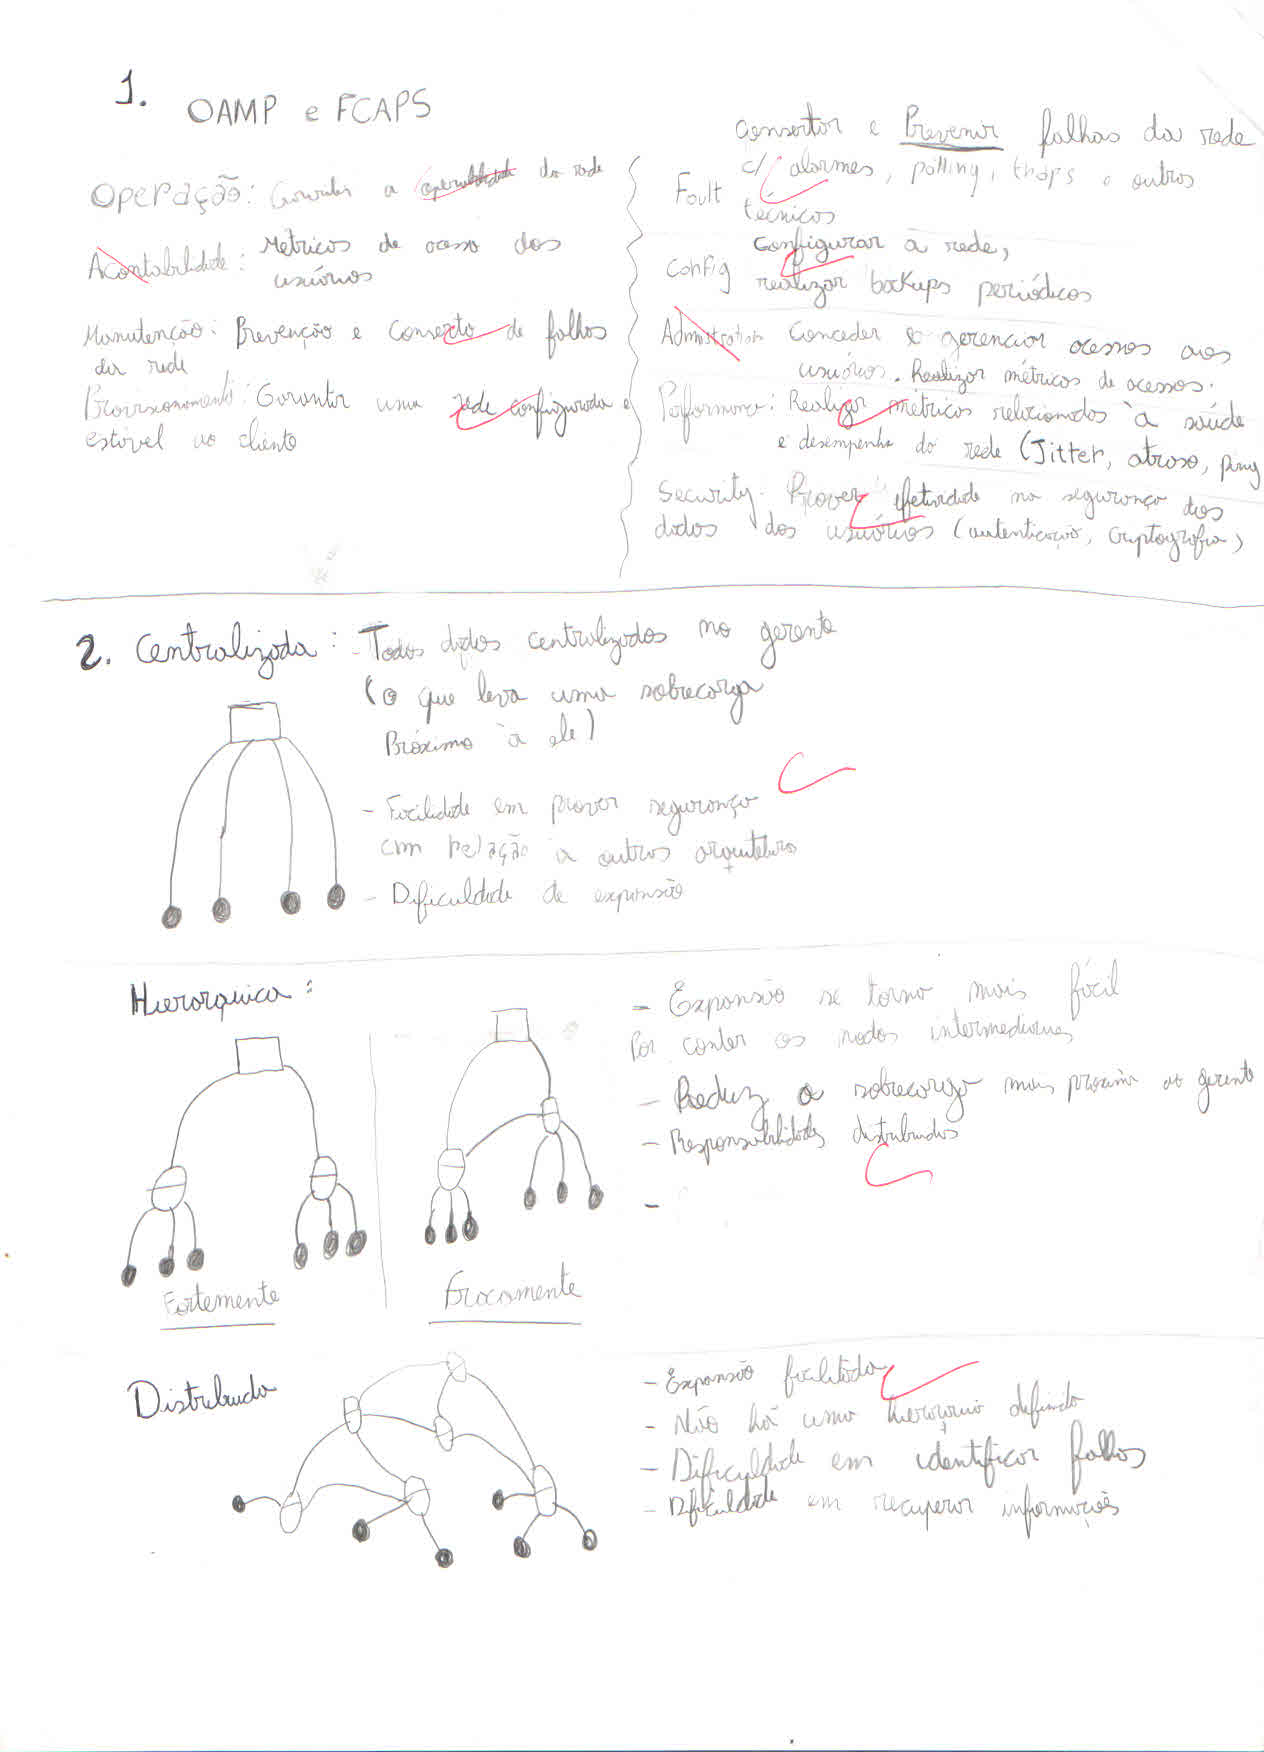 1. OAMP e FCAPS
Operação: Garantir a da rede
Acontabilidade: Métricas de acesso dos
usuários
Manutenção: Prevenção e Conserto de falhas
da rede
Provisionamento: Garantir uma rede configurada e
estável ao cliente
Consertar e Prevenir falhas da rede
Fault c/ alarmes, polling, traps e outras
técnicas
Config Configurar a rede,
realizar backups periódicos
Administration Conceder e gerenciar acessos aos
usuários. Realizar métricas de acessos.
Performance: Realizar métricas relacionadas à saúde
e desempenho da rede (Jitter, atraso, ping
Security. Prover efetividade na segurança dos
dados dos usuários (autenticação, criptografia)
2. Centralizada: - Todos dados centralizados no gerente
(o que leva uma sobrecarga
Próximo à ele)
- Facilidade em prover segurança
com relação a outras arquiteturas
- Dificuldade de expansão
Hierarquica:
Fortemente
Fracamente
- Expansão se torna mais fácil
Por conter os nodos
- Reduz a sobrecarga mais próximo ao gerente
- Responsabilidades distribuídas
-
Distribuida
- Expansão facilitada
- Não há uma hierarquia definida
- Dificuldade em identificar falhas
- Dificuldade em recuperar informações